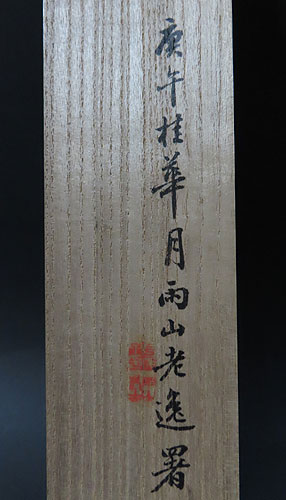 庚午桂華月雨山老逸署